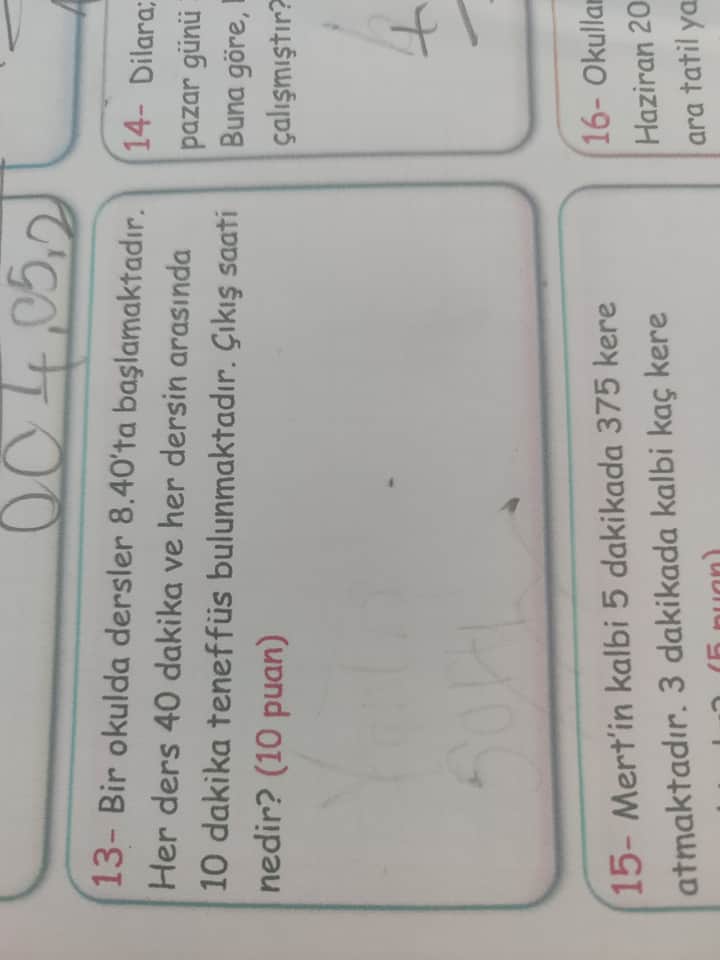 00 4,05,2
13- Bir okulda dersler 8.40'ta başlamaktadır.
Her ders 40 dakika ve her dersin arasında
10 dakika teneffüs bulunmaktadır. Çıkış saati
nedir? (10 puan)
14- Dilara;
pazar günü
Buna göre,
çalışmıştır?
15- Mert'in kalbi 5 dakikada 375 kere
atmaktadır. 3 dakikada kalbi kaç kere
(5 puan)
16- Okullar
Haziran 20
ara tatil ya